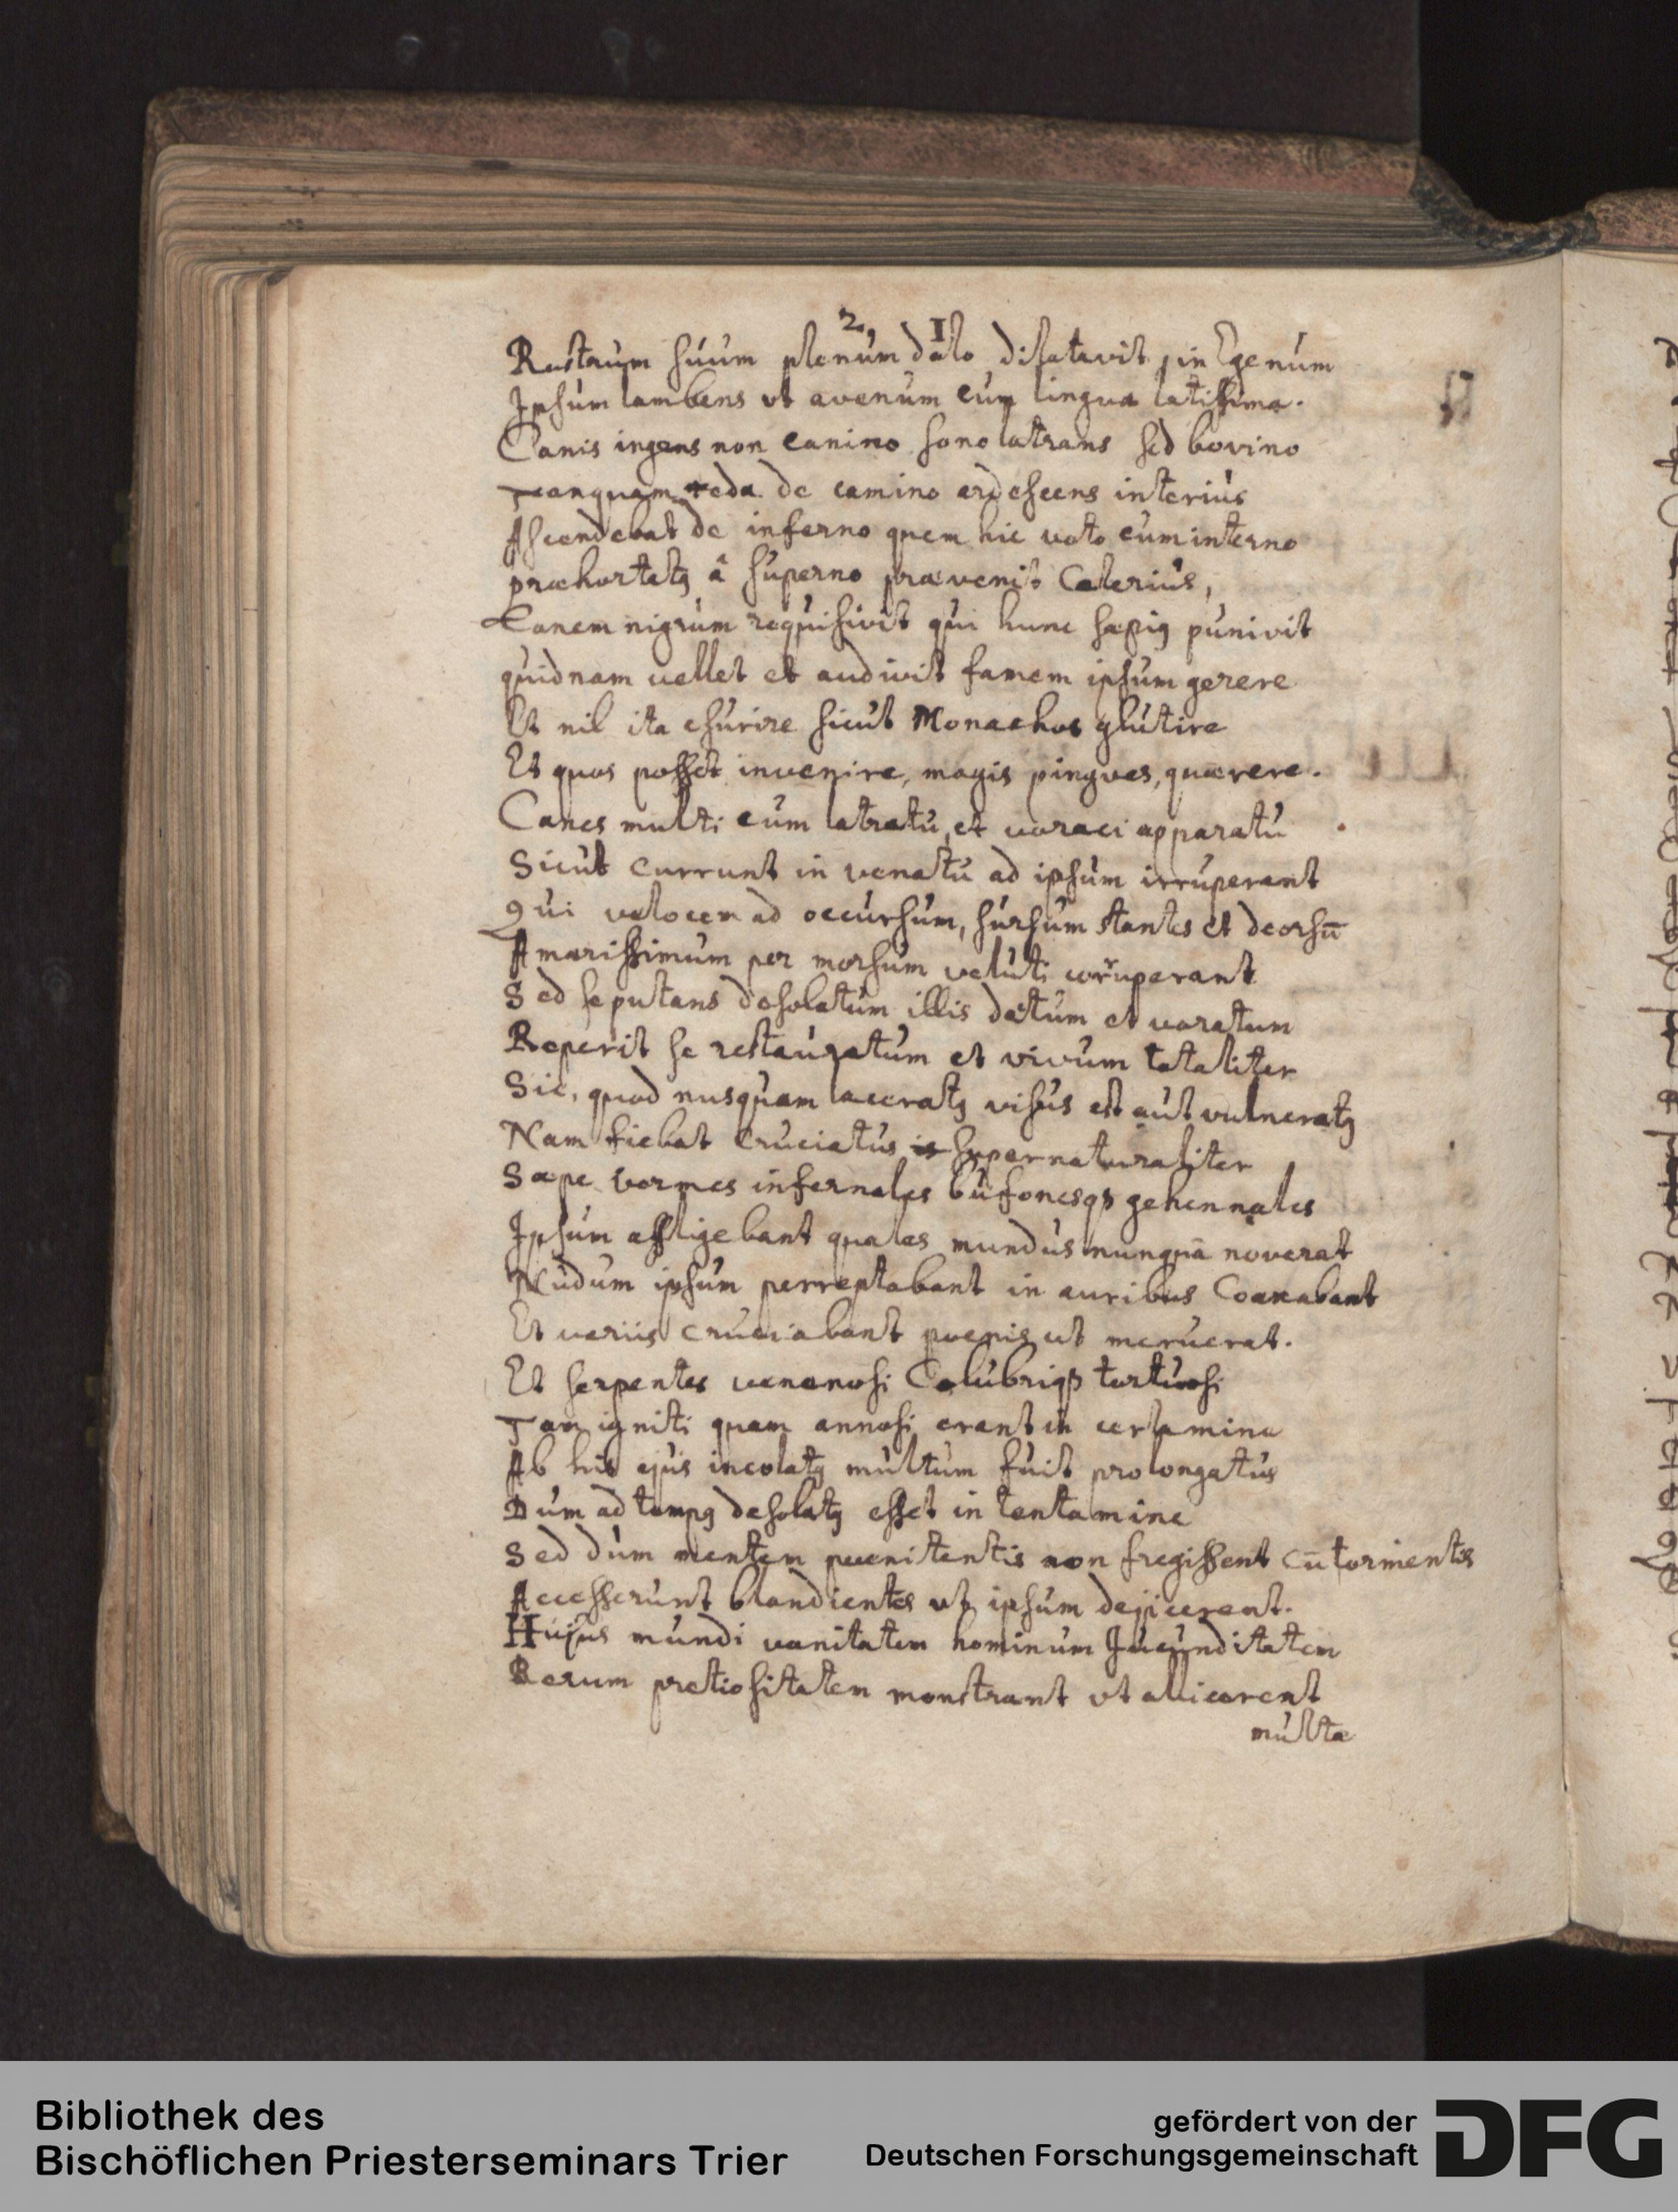 2, I
Rostrum suum plenum dolo dilatavit, in Egenum
Ipsum lambens ut avenum cum lingua latissima.
Canis ingens non canino sono latrans sed bovino
Tanquam teda de camino ardescens interius
Ascendebat de inferno quem hic voto cum interno
præhortatꝯ â superno prævenit Celerius,
Canem nigrum requisivit qui hunc sæpiꝯ punivit
quidnam vellet et audivit famem ipsum gerere
Et nil ita esurire sicut Monachos glutire
Et quos posset invenire, magis pingves, quærere.
Canes multi cum latratu, et voraci apparatu
Sicut currunt in venatu ad ipsum irruperant
Qui velocem ad occursum, sursum stantes et deorsū
Amarissimum per morsum veluti corruperant
Sed se putans desolatum illis datum et voratum
Reperit se restauratum et vivum totaliter
Sic, quod nusquam laceratꝯ visus est aut vulneratꝯ
Nam fiebat Cruciatus is supernaturaliter
Sæpe vormes infernales bufonesqꝫ gehennales
Ipsum affligebant quales mundus nunquā noverat
Nudum ipsum perreptabant in auribus Coaxabant
Et variis cruciabant poenis ut meruerat.
Et serpentes venenosi Colubriqꝫ tortuosi
Tam igniti quam annosi erant in certamine
Ab his ejus incolatꝯ multum fuit prolongatus
Dum ad tempꝯ desolatꝯ esset in tentamine
Sed dum mentem poenitentis non fregissent cū tormentis
Accesserunt blandientes ut ipsum dejicerent.
Hujus mundi vanitatem hominum Jucunditatem
Rerum pretiositatem monstrant ut allicerent
multa
Bibliothek des
Bischöflichen Priesterseminars Trier
gefördert von der
Deutschen Forschungsgemeinschaft
DFG